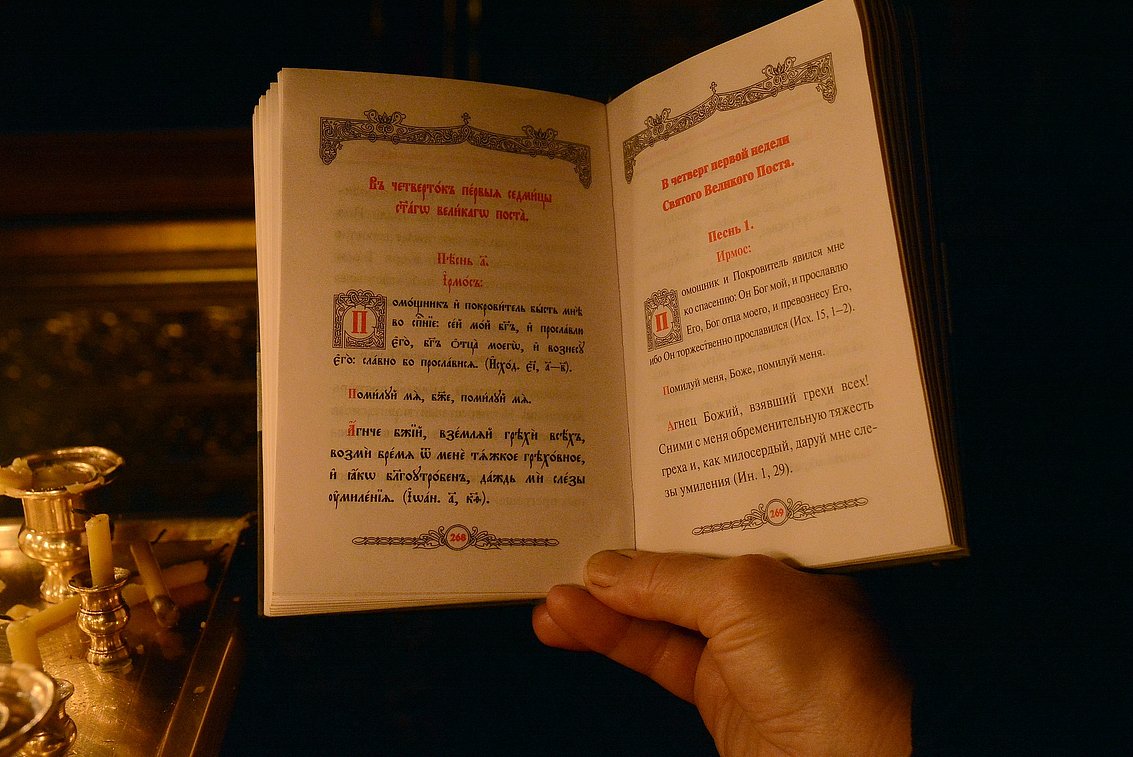 Въ четверто́къ пе́рвыѧ седми́цы
ст҃а́гѡ вели́кагѡ поста̀.
Пѣ́снь а҃.
І҆рмо́съ:
Помо́щникъ и҆ покрови́тель бы́сть мнѣ̀
во сп҃се́нїе: се́й мо́й бг҃ъ, и҆ просла́влю
є҆го̀, бг҃ъ ѻ҆тца̀ моегѡ̀, и҆ вознесу̀
є҆го̀: сла́вно бо просла́висѧ. (И҆схо́д. є҃і, а҃—в҃).
Поми́лꙋй мѧ̀, бж҃е, поми́лꙋй мѧ̀.
А҆́гнче бж҃їй, взе́млѧй грѣхѝ всѣ́хъ,
возмѝ бре́мѧ ѿ менє̀ тѧ́жкое грѣхо́вное,
и҆ ꙗ҆́кѡ бл҃гоутро́бенъ, да́ждь мѝ сле́зы
ᲂу҆миле́нїѧ. (І҆ѡа́н. а҃, к҃ѳ).
268
В четверг первой недели
Святого Великого Поста.
Песнь 1.
Ирмос:
Помощник и Покровитель явился мне
ко спасению: Он Бог мой, и прославлю
Его, Бог отца моего, и превознесу Его,
ибо Он торжественно прославился (Исх. 15, 1–2).
Помилуй меня, Боже, помилуй меня.
Агнец Божий, взявший грехи всех!
Сними с меня обременительную тяжесть
греха и, как милосердый, даруй мне сле-
зы умиления (Ин. 1, 29).
269